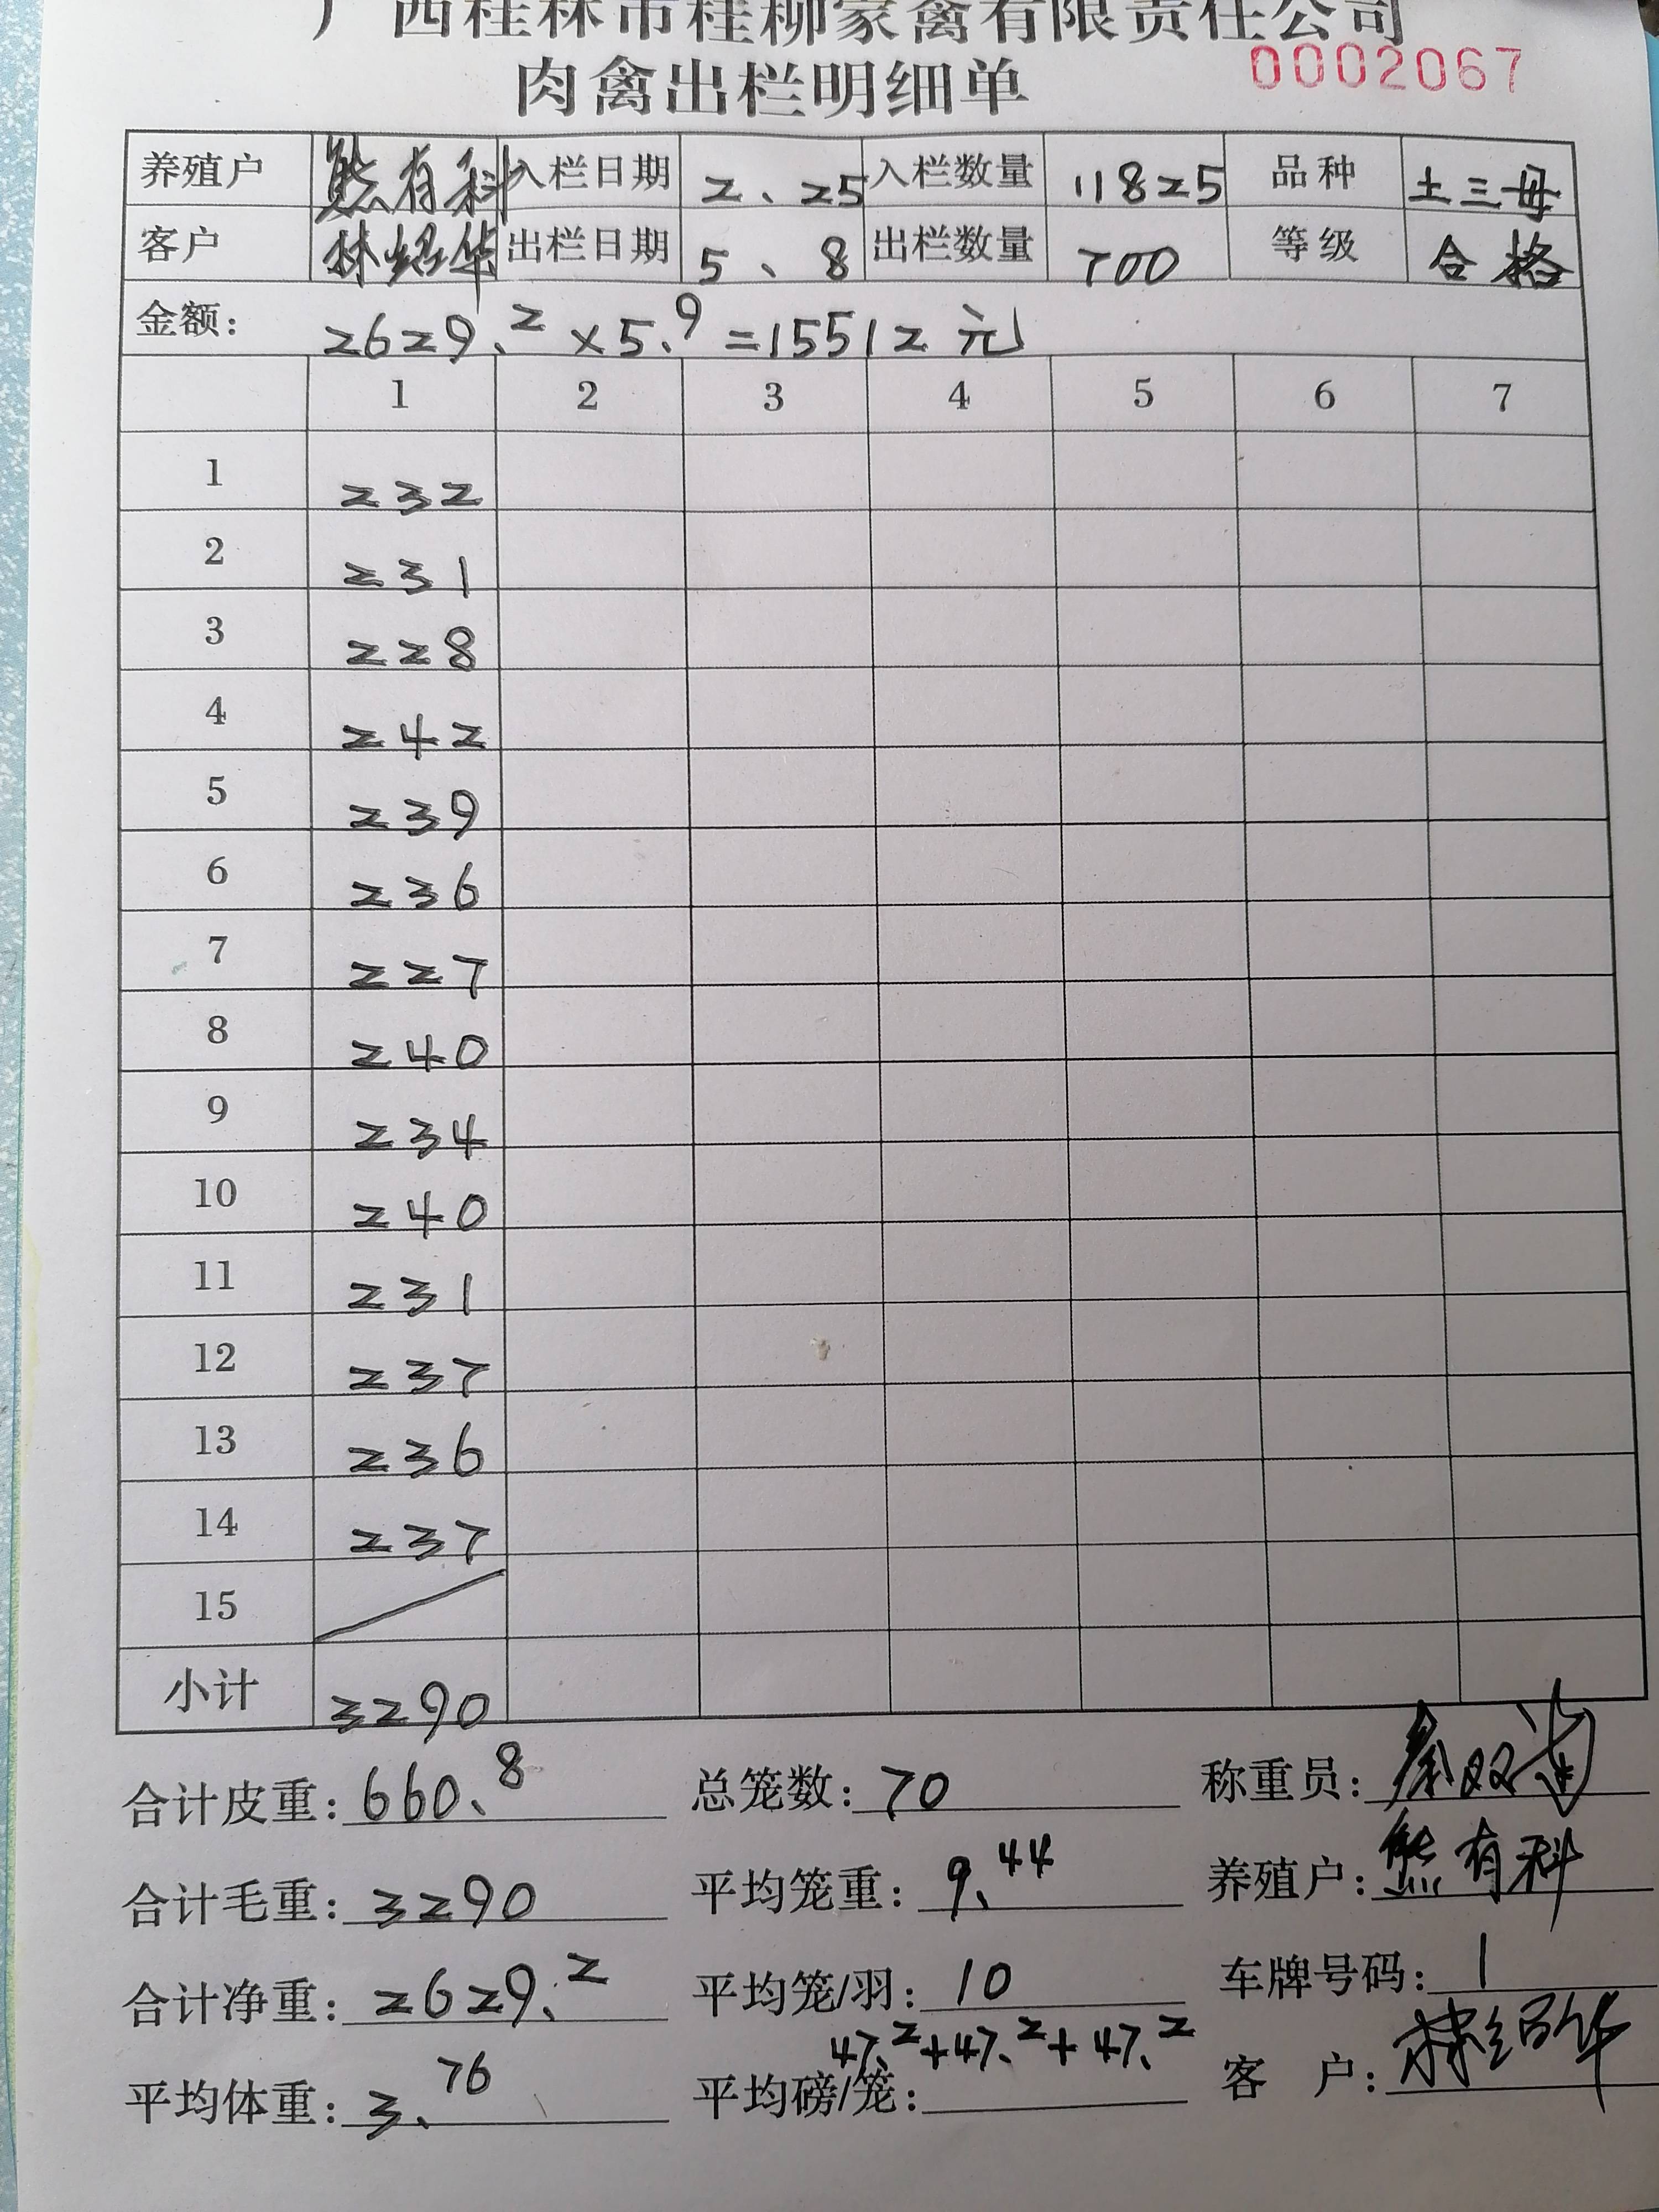 广西桂林市桂柳家禽有限责任公司
肉禽出栏明细单 0002067
养殖户 熊有科 入栏日期 2、25 入栏数量 11825 品种 土三母
客户 林绍华 出栏日期 5、8 出栏数量 700 等级 合格
金额: 2629.2 × 5.9 = 15512 元
1 2 3 4 5 6 7
1 232
2 231
3 228
4 242
5 239
6 236
7 227
8 240
9 234
10 240
11 231
12 237
13 236
14 237
15
小计 3290
合计皮重: 660.8 总笼数: 70 称重员: 秦双
合计毛重: 3290 平均笼重: 9.44 养殖户: 熊有科
合计净重: 2629.2 平均笼/羽: 10 车牌号码: 1
47.2+47.2+47.2
平均体重: 3.76 平均磅/笼: 客 户: 林绍华